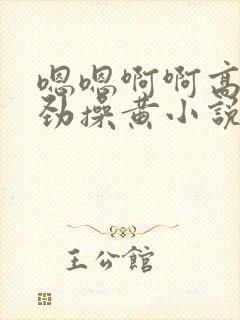 嗯嗯啊啊高
劲操黄小說
王公館